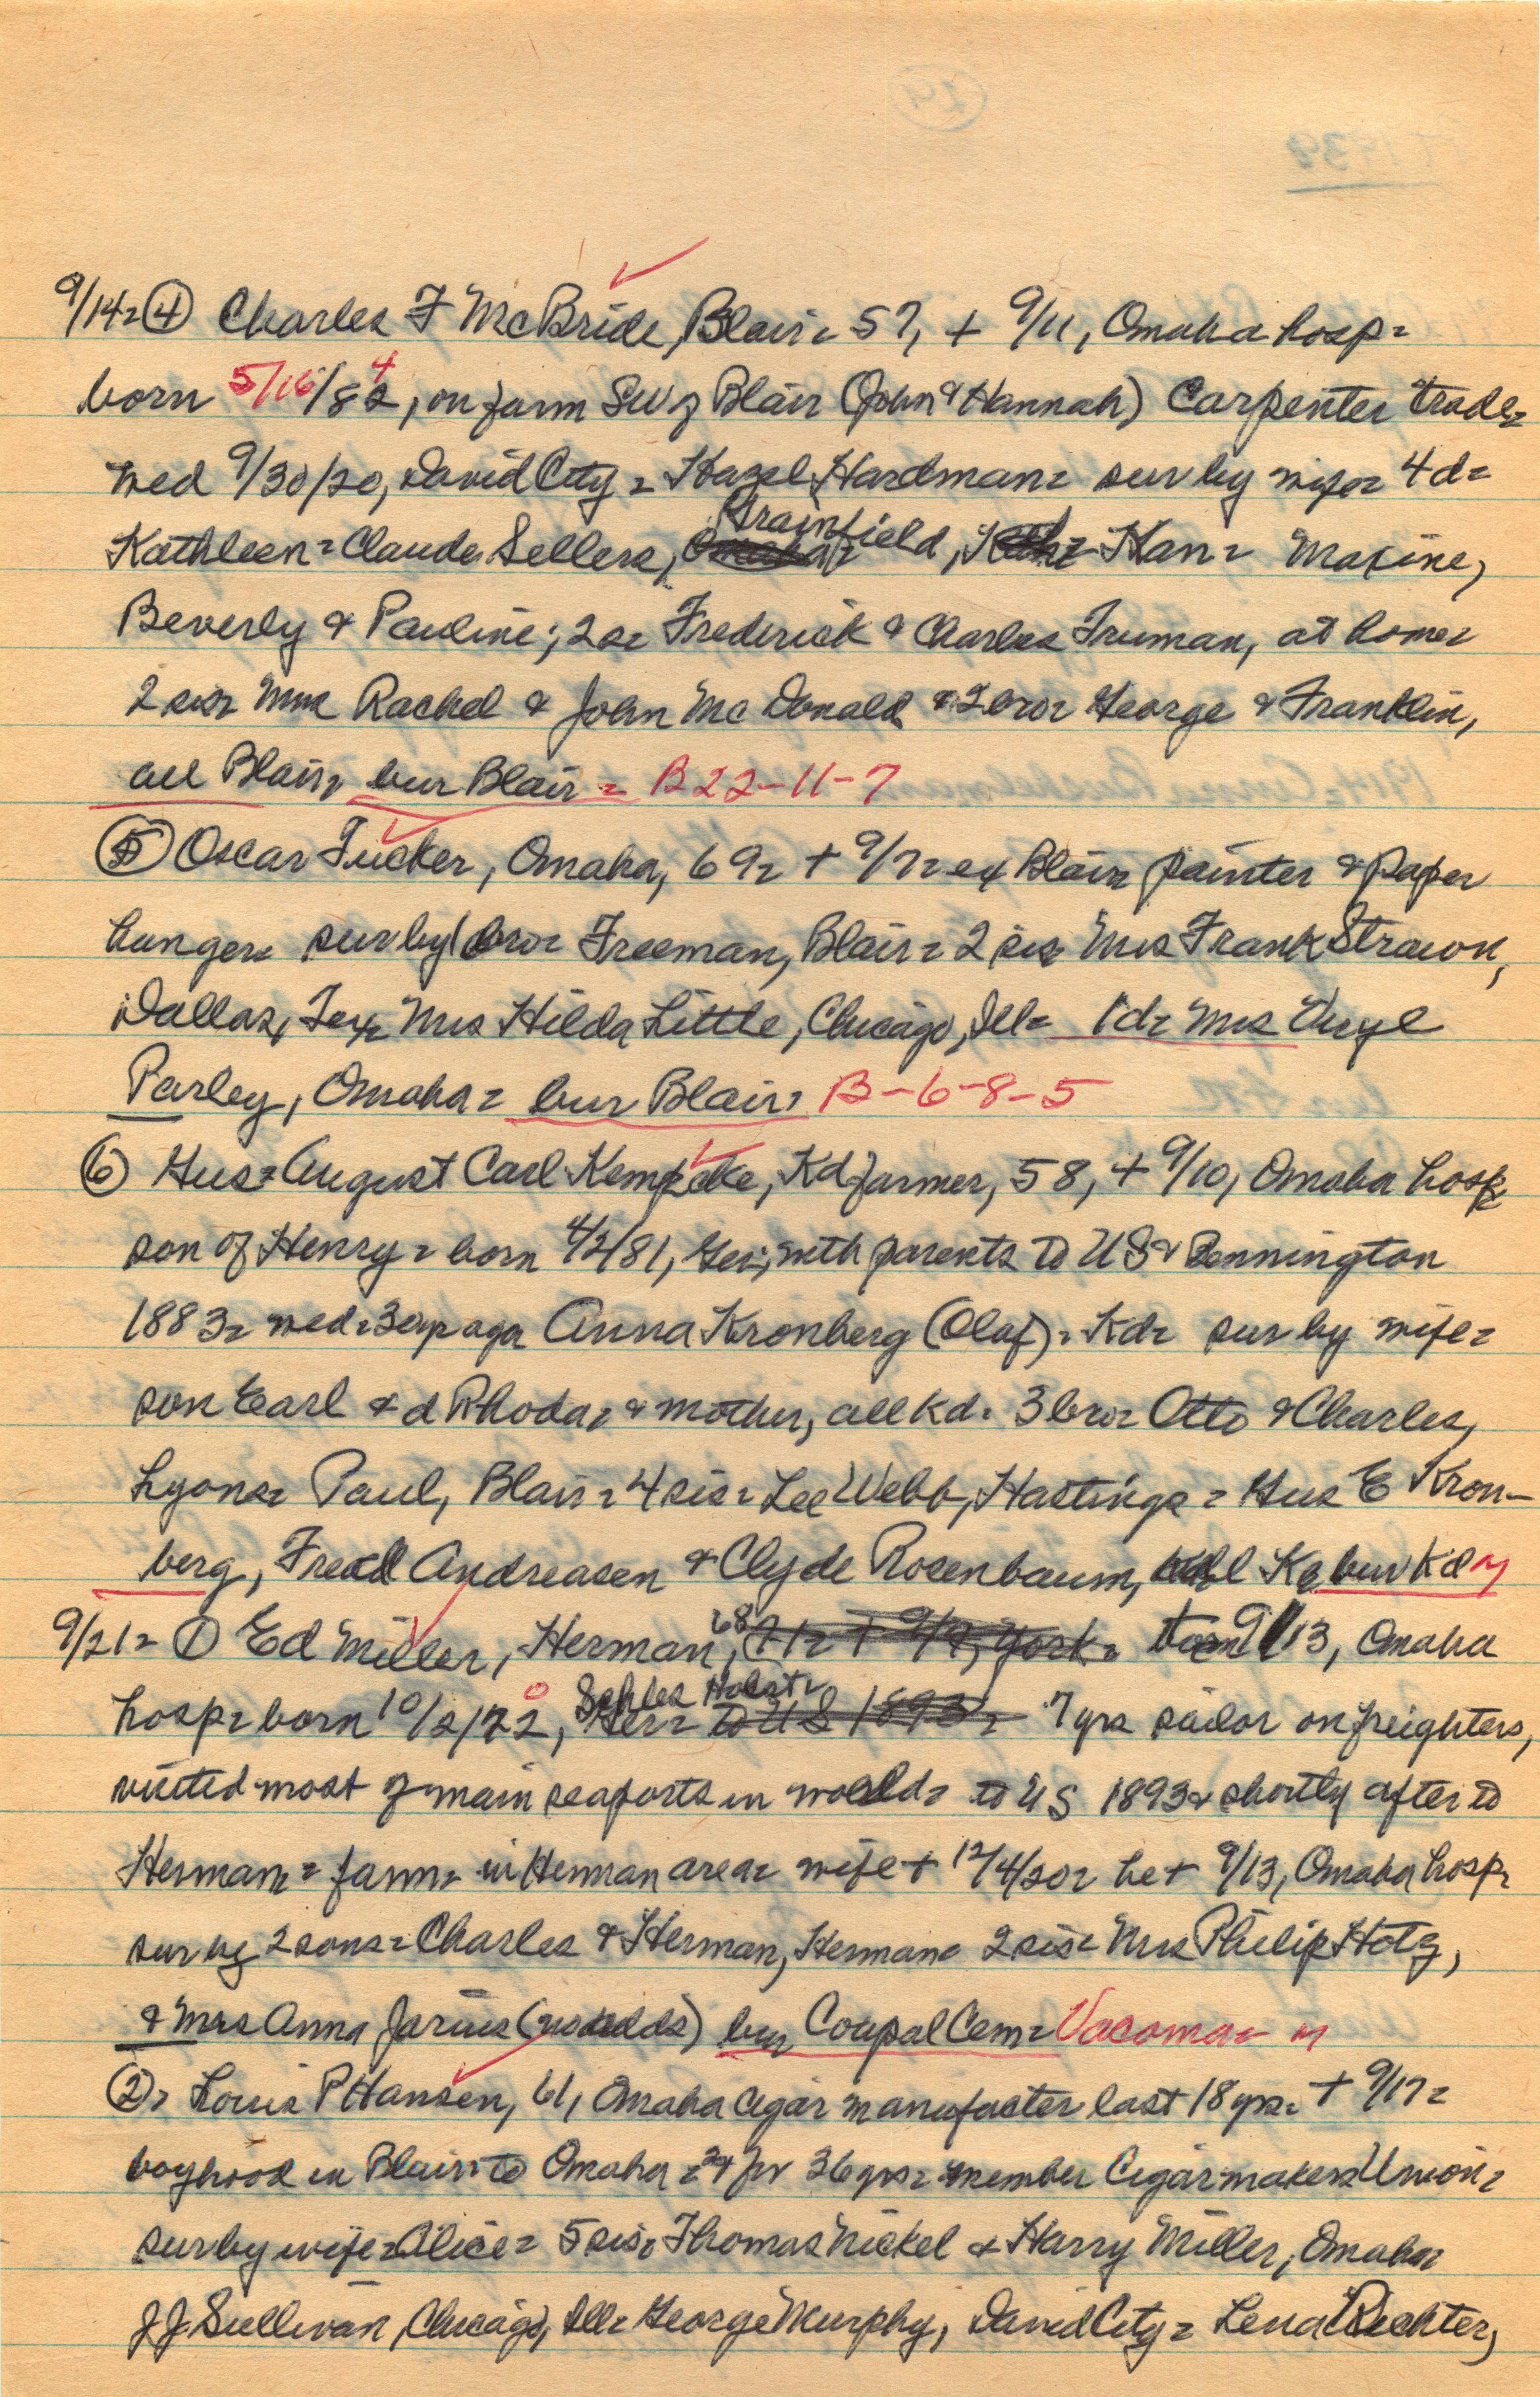 9/14= ④ Charles F McBride, Blair= 57, + 9/11, Omaha hosp=
born 5/16/84, on farm SW of Blair (John & Hannah) Carpenter trade=
wed 9/30/20, David City= Hazel Hardman= sur by wife= 4d=
Kathleen= Claude Sellers, Grainfield, Kan= Maxine,
Beverly & Pauline; 2s= Frederick & Charles Truman, at home=
2 sis= Mrs Rachel & John McDonald & 2 bro= George & Franklin,
all Blair= bur Blair= B 22-11-7
⑤ Oscar Tucker, Omaha, 69= + 9/7= ex Blair painter & paper
hanger= sur by 1 bro= Freeman, Blair= 2 sis Mrs Frank Strawn,
Dallas, Tex= Mrs Hilda Little, Chicago, Ill= 1d= Mrs
Parley, Omaha= bur Blair= B-6-8-5
⑥ Gus= August Carl Kempcke, Kd farmer, 58, + 9/10, Omaha hosp
son of Henry= born 4/2/81, Ger; with parents to US & Bennington
1883= wed= ago Anna Kronberg (Olaf)= Kd= sur by wife=
son Earl & d Rhoda= & mother, all Kd= 3 bro= Otto & Charles,
Lyons= Paul, Blair= 4 sis= Lee Webb, Hastings= Gus E Kron-
berg, Fred Andreasen & Clyde Rosenbaum, bur Kd M
9/21= ① Ed Miller, Herman, 68 9/13, Omaha
hosp= born 10/2/70, Schles Holst= 7 yrs sailor on freighters,
visited most of main seaports in world= to US 1893 & shortly after to
Herman= farm= in Herman area= wife + 12/4/30= he + 9/13, Omaha hosp=
sur by 2 sons= Charles & Herman, Herman= 2 sis= Mrs Philip Hotz,
& Mrs Anna Jarius (no adds) bur Coupal Cem= Vacoma= M
②= Louis P Hansen, 61, Omaha cigar manufacter last 18 yrs= + 9/17=
boyhood in Blair= to Omaha= 36 yrs= member Cigarmakers Union=
sur by wife= Alice= 5 sis= Thomas Nickel & Harry Miller, Omaha=
J J Sullivan, Chicago, Ill= George Murphy, David City= Lena Riechter,